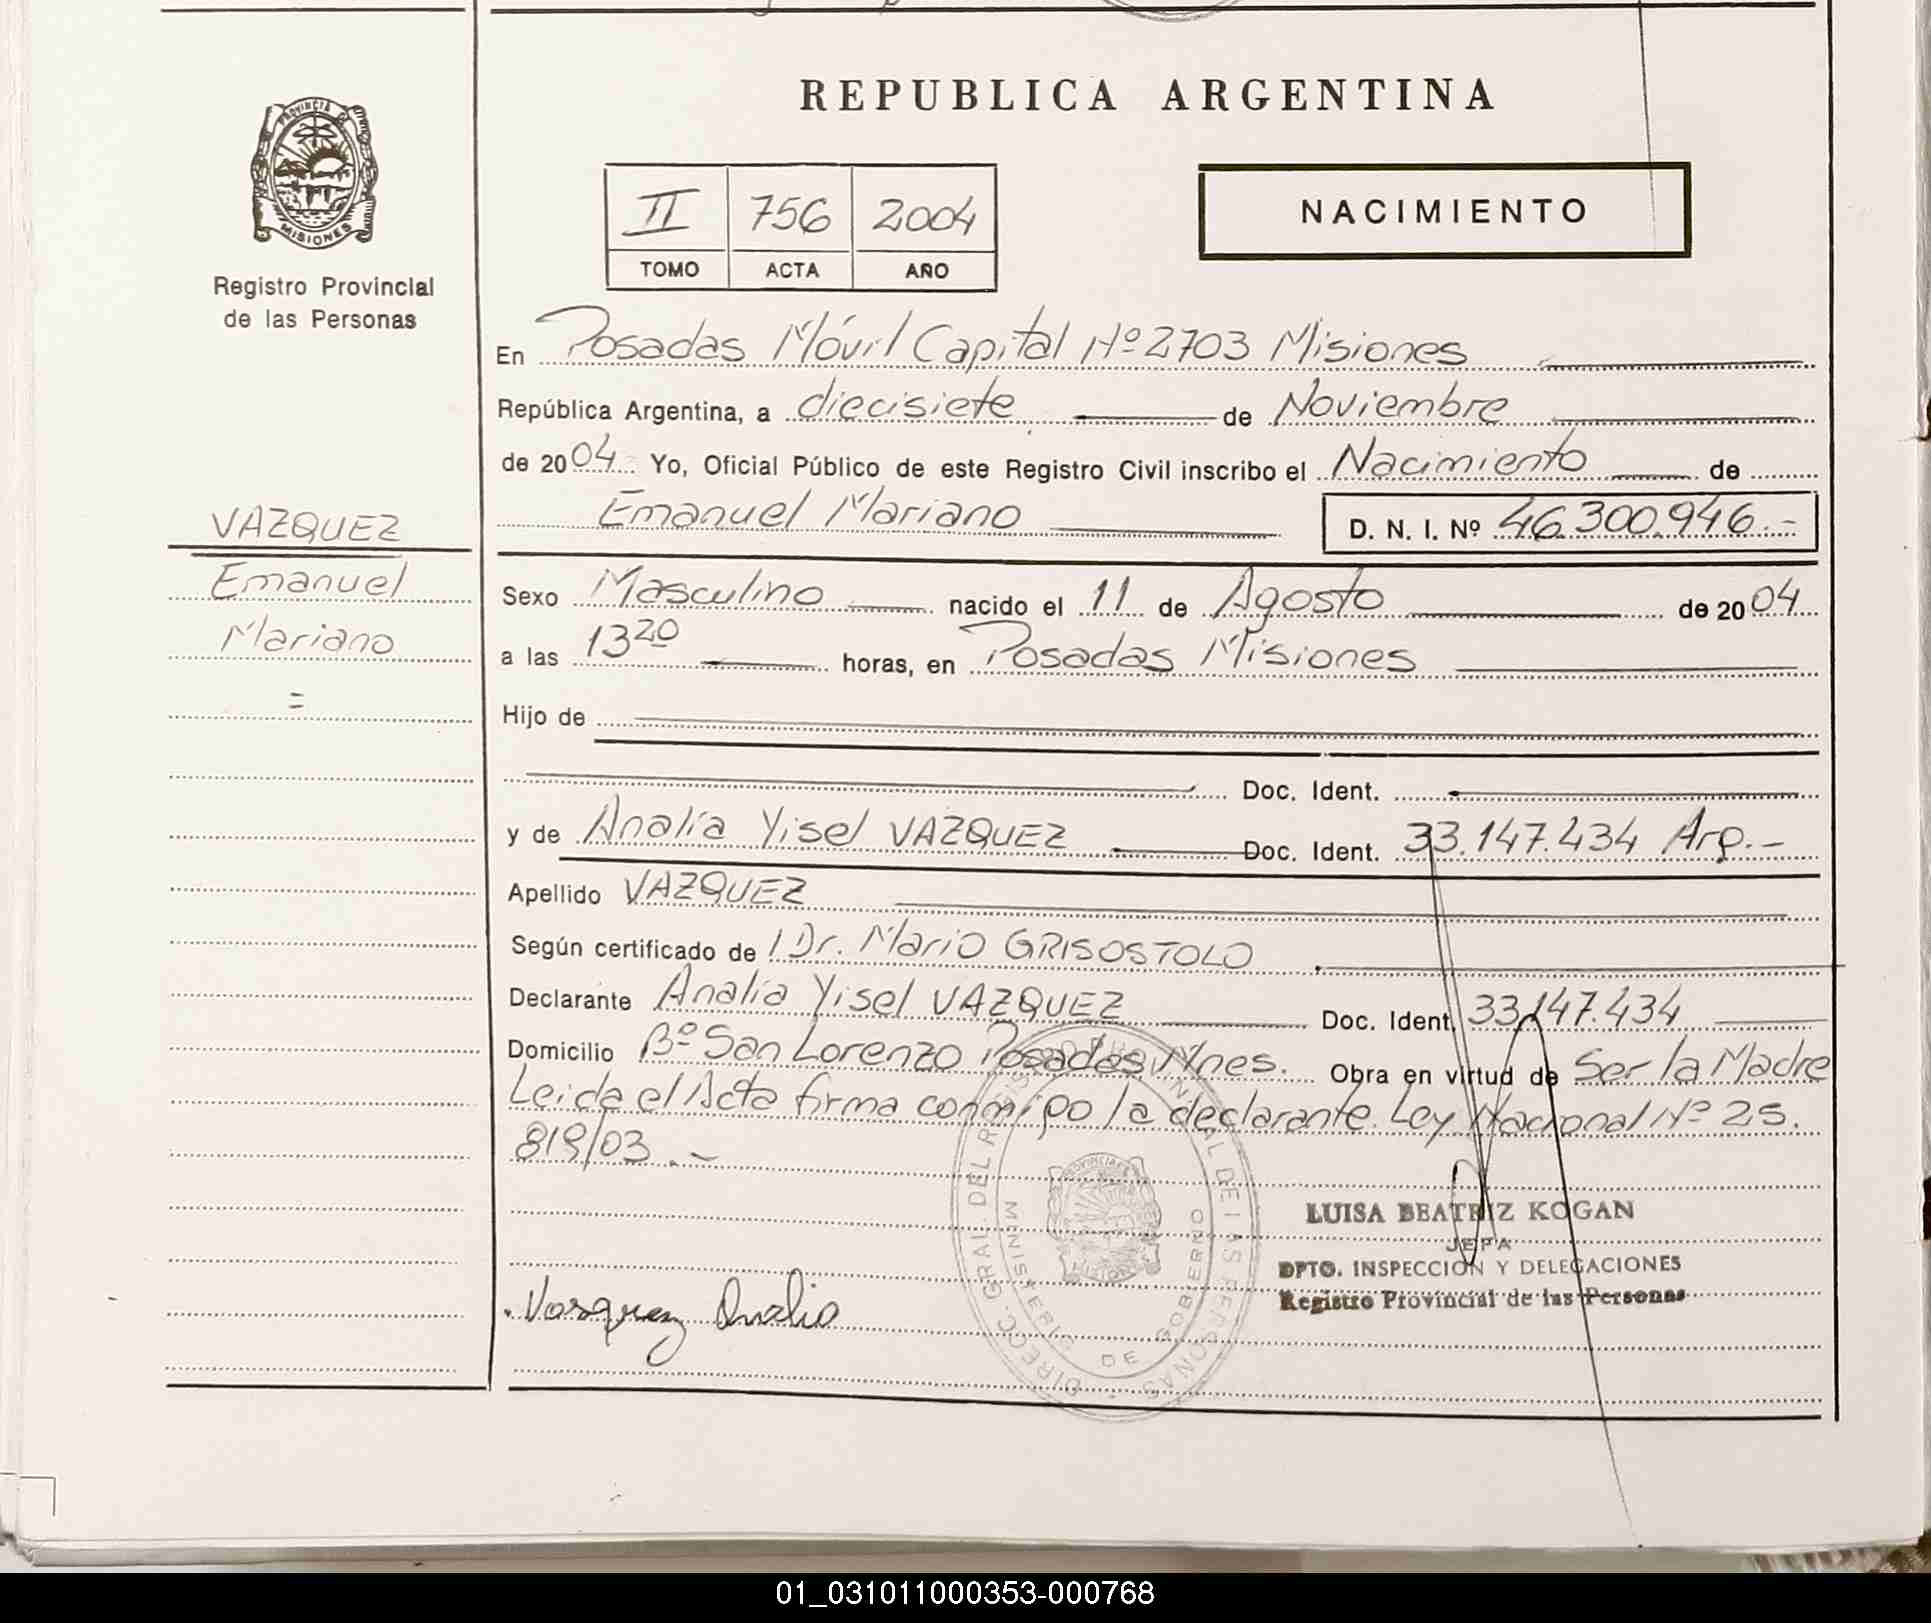 REPUBLICA ARGENTINA
PROVINCIA DE MISIONES
Registro Provincial
de las Personas
II 756 2004
TOMO ACTA AÑO
NACIMIENTO
En Posadas Móvil Capital Nº 2703 Misiones
República Argentina, a diecisiete de Noviembre
de 2004 Yo, Oficial Público de este Registro Civil inscribo el Nacimiento de
Emanuel Mariano D. N. I. Nº 46.300.946.-
VAZQUEZ
Emanuel
Mariano
=
Sexo Masculino nacido el 11 de Agosto de 2004
a las 13 20 horas, en Posadas Misiones
Hijo de
Doc. Ident.
y de Analía Yisel VAZQUEZ Doc. Ident. 33.147.434 Arg.-
Apellido VAZQUEZ
Según certificado de Dr. Mario GRISOSTOLO
Declarante Analía Yisel VAZQUEZ Doc. Ident. 33.147.434
Domicilio Bº San Lorenzo Posadas Mnes. Obra en virtud de Ser la Madre
Leida el Acta firma conmigo la declarante. Ley Nacional Nº 25.
819/03.-
DIRECC. GRAL. DEL REGISTRO PROVINCIAL DE LAS PERSONAS
MINISTERIO DE GOBIERNO
LUISA BEATRIZ KOGAN
JEFA
DPTO. INSPECCION Y DELEGACIONES
Registro Provincial de las Personas
Vasquez Analia
01_031011000353-000768